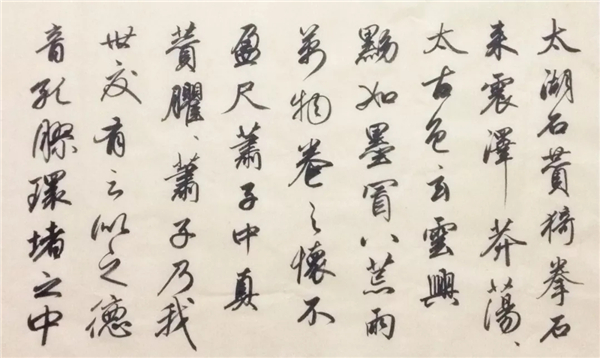 太湖石贊猗拳石
来震澤莽蕩、
太古色玄雲興
黝如墨冒八荒雨
萬物卷之懷不
盈尺蕭子中真
贊臞、蕭子乃我
世交有之似之德
音孔膠環堵之中